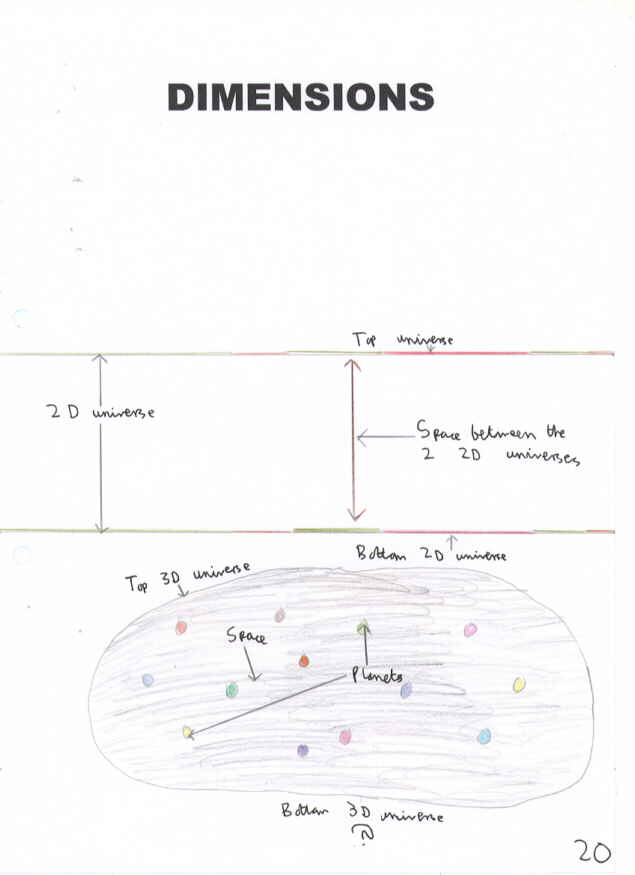 DIMENSIONS
Top universe
2 D universe
Space between the
2 2D universes
Bottom 2D universe
Top 3D universe
Space
Planets
Bottom 3D universe
20